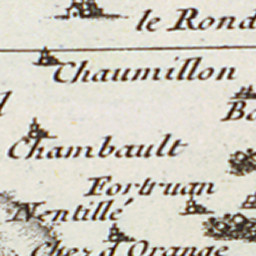 le Rond
Chaumiſlon
Bo
Chambault
Fortruan
Nentillé
Cher d'Orange